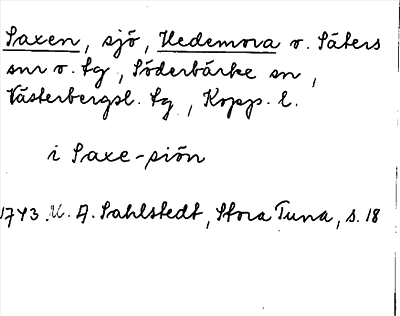 Saxen, sjö, Hedemora o. Säters
snr o. tg, Söderbärke sn,
Västerbergsl. tg, Kopp. l.
i Saxe-siön
1743. U. A. Sahlstedt, Stora Tuna, s. 18